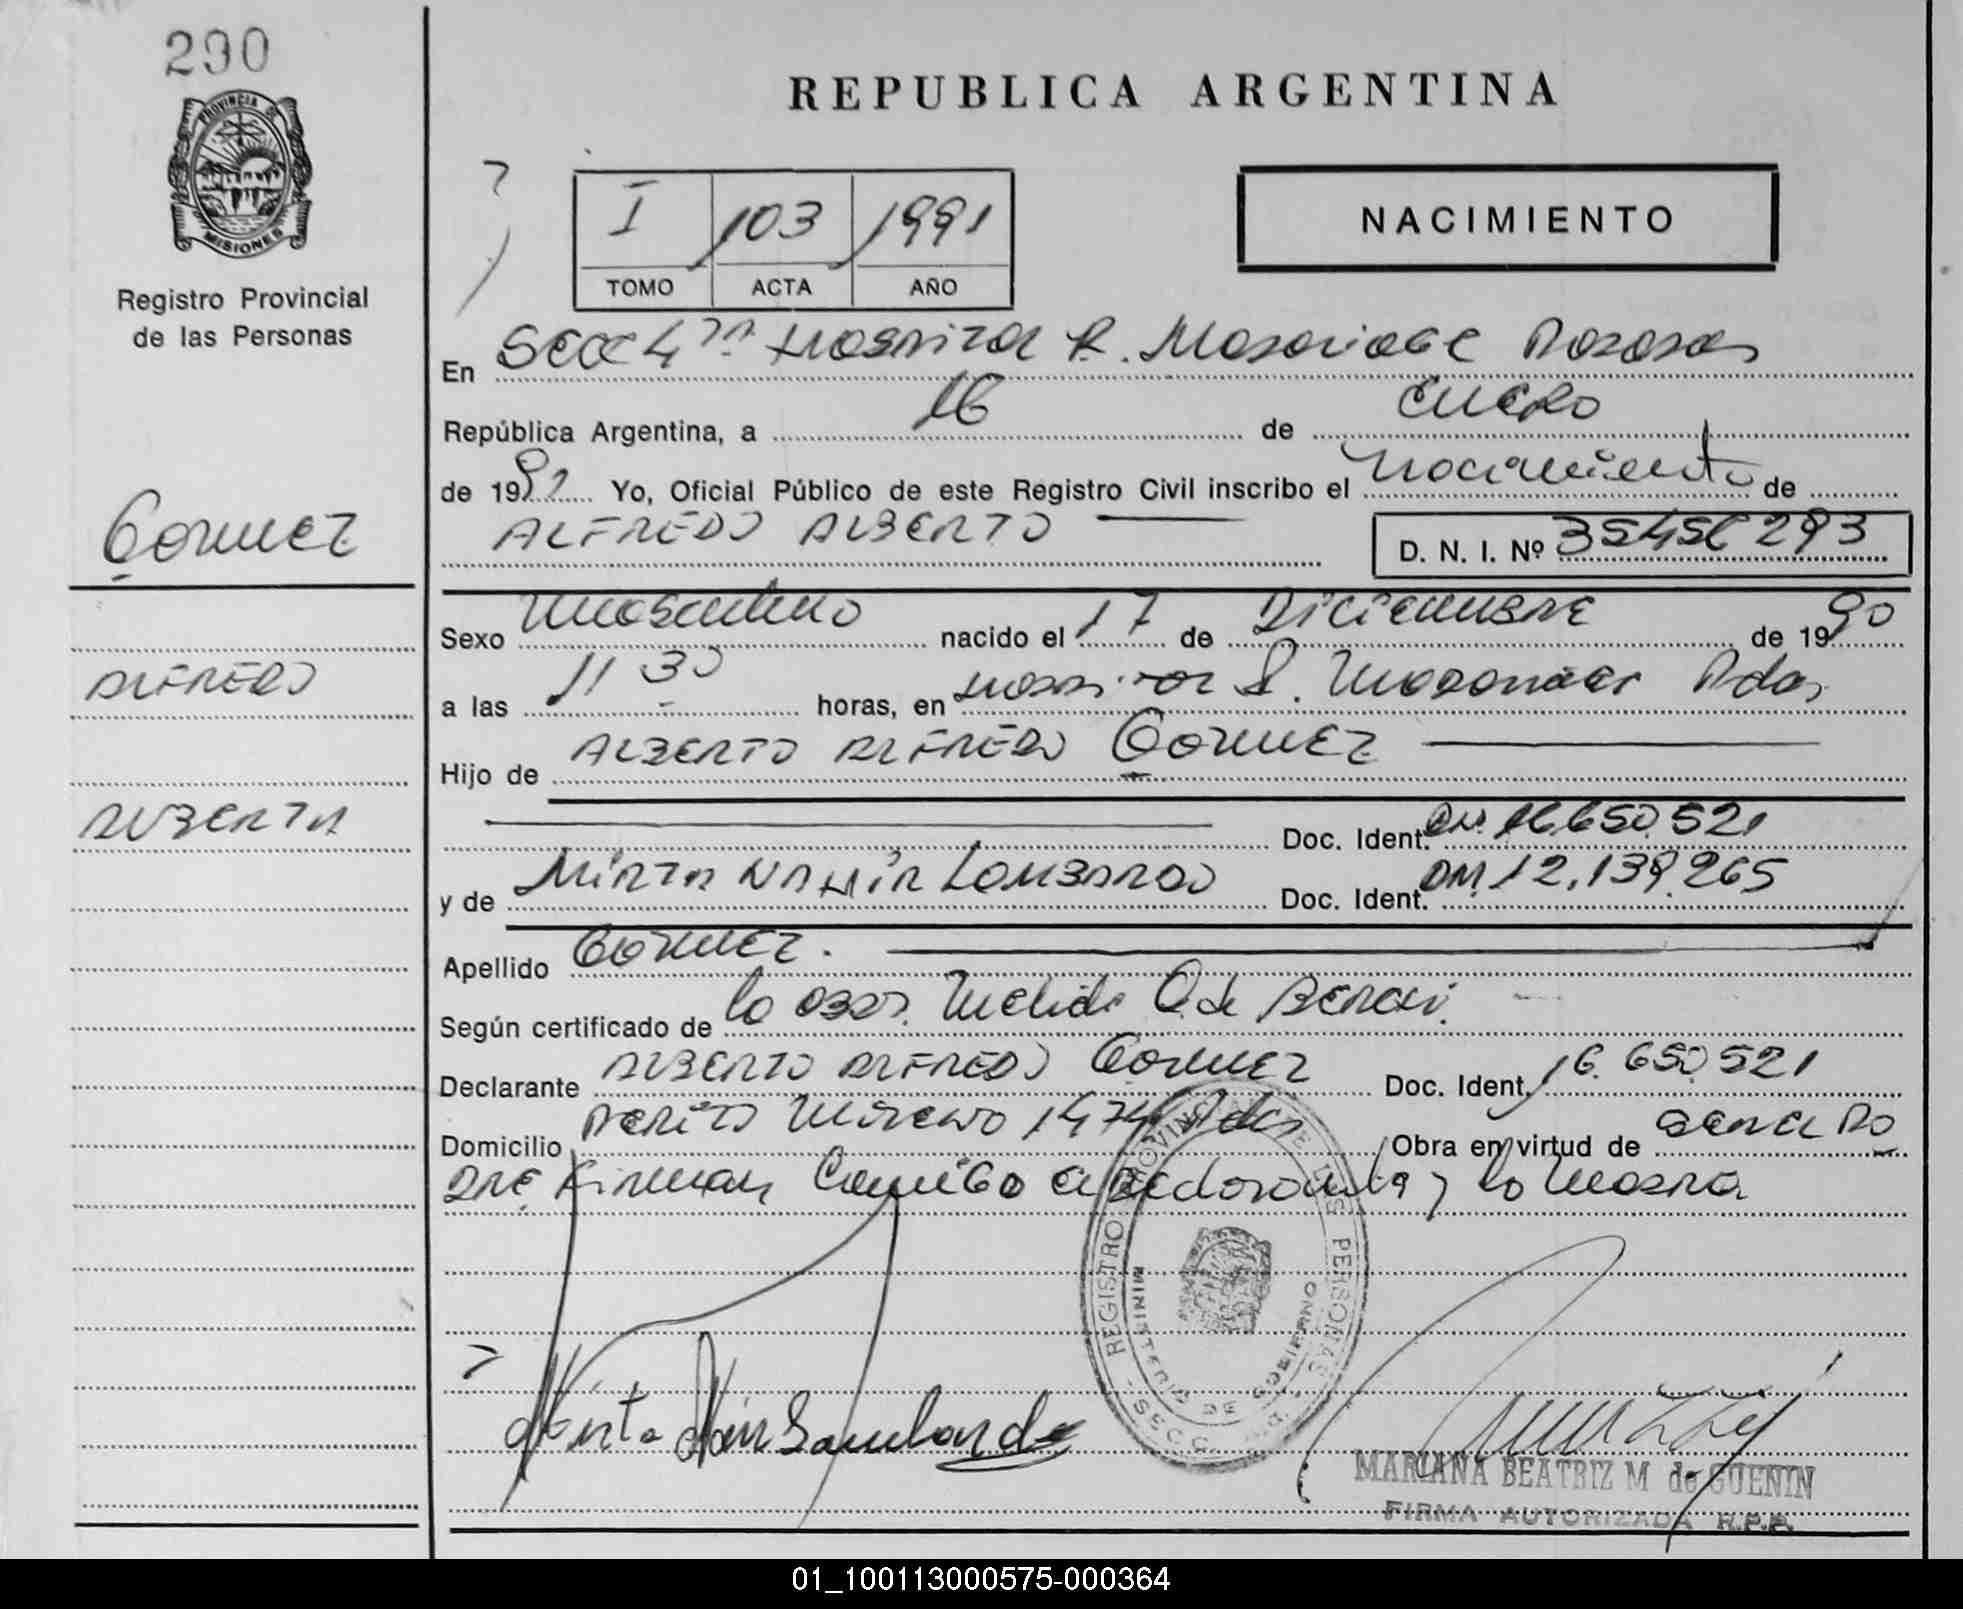 290
PROVINCIA DE
MISIONES
Registro Provincial
de las Personas
Gomez
ALFREDO
ALBERTO
REPUBLICA ARGENTINA
I 103 1991
TOMO ACTA AÑO
NACIMIENTO
En Secc 4ta Hospital R. Madariaga Posadas
República Argentina, a 16 de Enero
de 1991 Yo, Oficial Público de este Registro Civil inscribo el nacimiento de
ALFREDO ALBERTO D. N. I. Nº 293
Sexo Masculino nacido el 17 de Diciembre de 1990
a las 11 30 horas, en Hospital R. Madariaga Pdas
Hijo de ALBERTO ALFREDO Gomez
Doc. Ident. DNI. 16.650.521
y de Mirta Nahir Lombardo Doc. Ident. DNI. 12.139.265
Apellido Gomez.
Según certificado de la obst. Melida de
Declarante ALBERTO ALFREDO Gomez Doc. Ident. 16.650.521
Domicilio Perito Moreno 1474 Pdas Obra en virtud de ser el Pa
dre Firman Conmigo el declarante y la Madre
REGISTRO PROVINCIAL DE LAS PERSONAS
MINISTERIO DE GOBIERNO
SECC.
Mirta Nair Lombardo
MARIANA BEATRIZ M de GUENIN
FIRMA AUTORIZADA R.P.P.
01_100113000575-000364